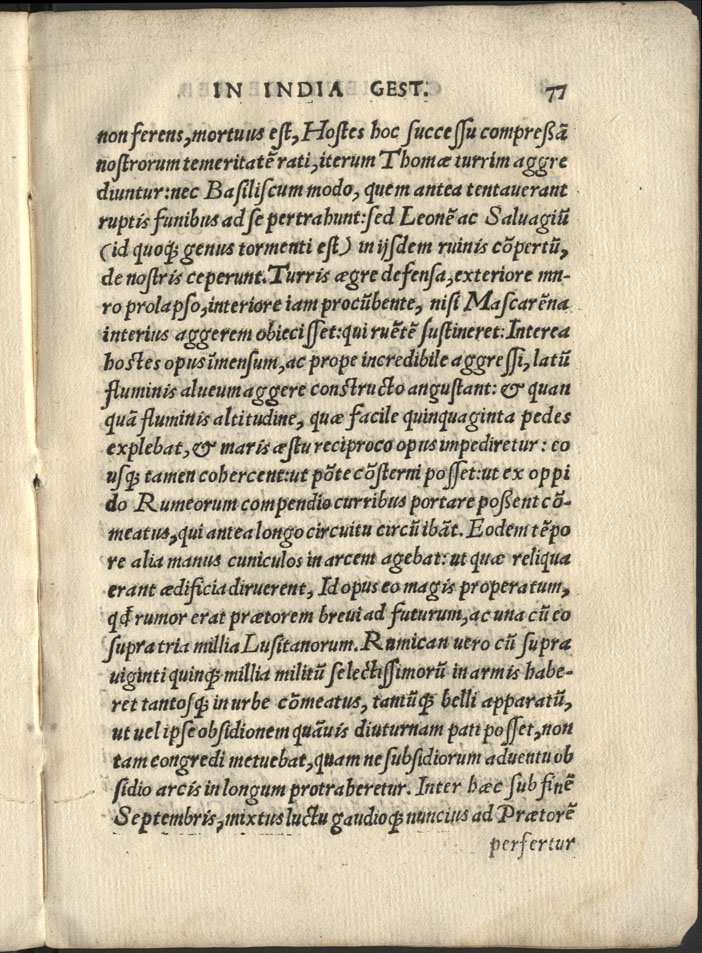 IN INDIA GEST. 77
non ferens, mortuus est, Hostes hoc successu compreßā
nostrorum temeritatē rati, iterum Thomæ turrim aggre
diuntur: nec Basiliscum modo, quem antea tentauerant
ruptis funibus ad se pertrahunt: sed Leonē ac Saluagiū
(id quoqꝫ genus tormenti est) in ijsdem ruinis cōpertū,
de nostris ceperunt. Turris ægre defensa, exteriore mu-
ro prolapso, interiore iam procūbente, nisi Mascarēna
interius aggerem obiecisset: qui ruētē sustineret: Interea
hostes opus īmensum, ac prope incredibile aggressi, latū
fluminis alueum aggere constructo angustant: & quan
quā fluminis altitudine, quæ facile quinquaginta pedes
explebat, & maris æstu reciproco opus impediretur: eo
usqꝫ tamen cohercent: ut pōte cōsterni posset: ut ex oppi
do Rumeorum compendio curribus portare poßent cō-
meatus, qui antea longo circuitu circūibāt. Eodem tēpo
re alia manus cuniculos in arcem agebat: ut quæ reliqua
erant ædificia diruerent, Id opus eo magis properatum,
qđ rumor erat prætorem breui ad futurum, ac una cū eo
supra tria millia Lusitanorum. Rumican uero cū supra
uiginti quinqꝫ millia militū selectissimorū in armis habe-
ret tantosqꝫ in urbe cōmeatus, tantūqꝫ belli apparatū,
ut uel ipse obsidionem quāuis diuturnam pati posset, non
tam congredi metuebat, quam ne subsidiorum aduentu ob
sidio arcis in longum protraheretur. Inter hæc sub finē
Septembris, mixtus luctu gaudioqꝫ nuncius ad Prætorē
perfertur